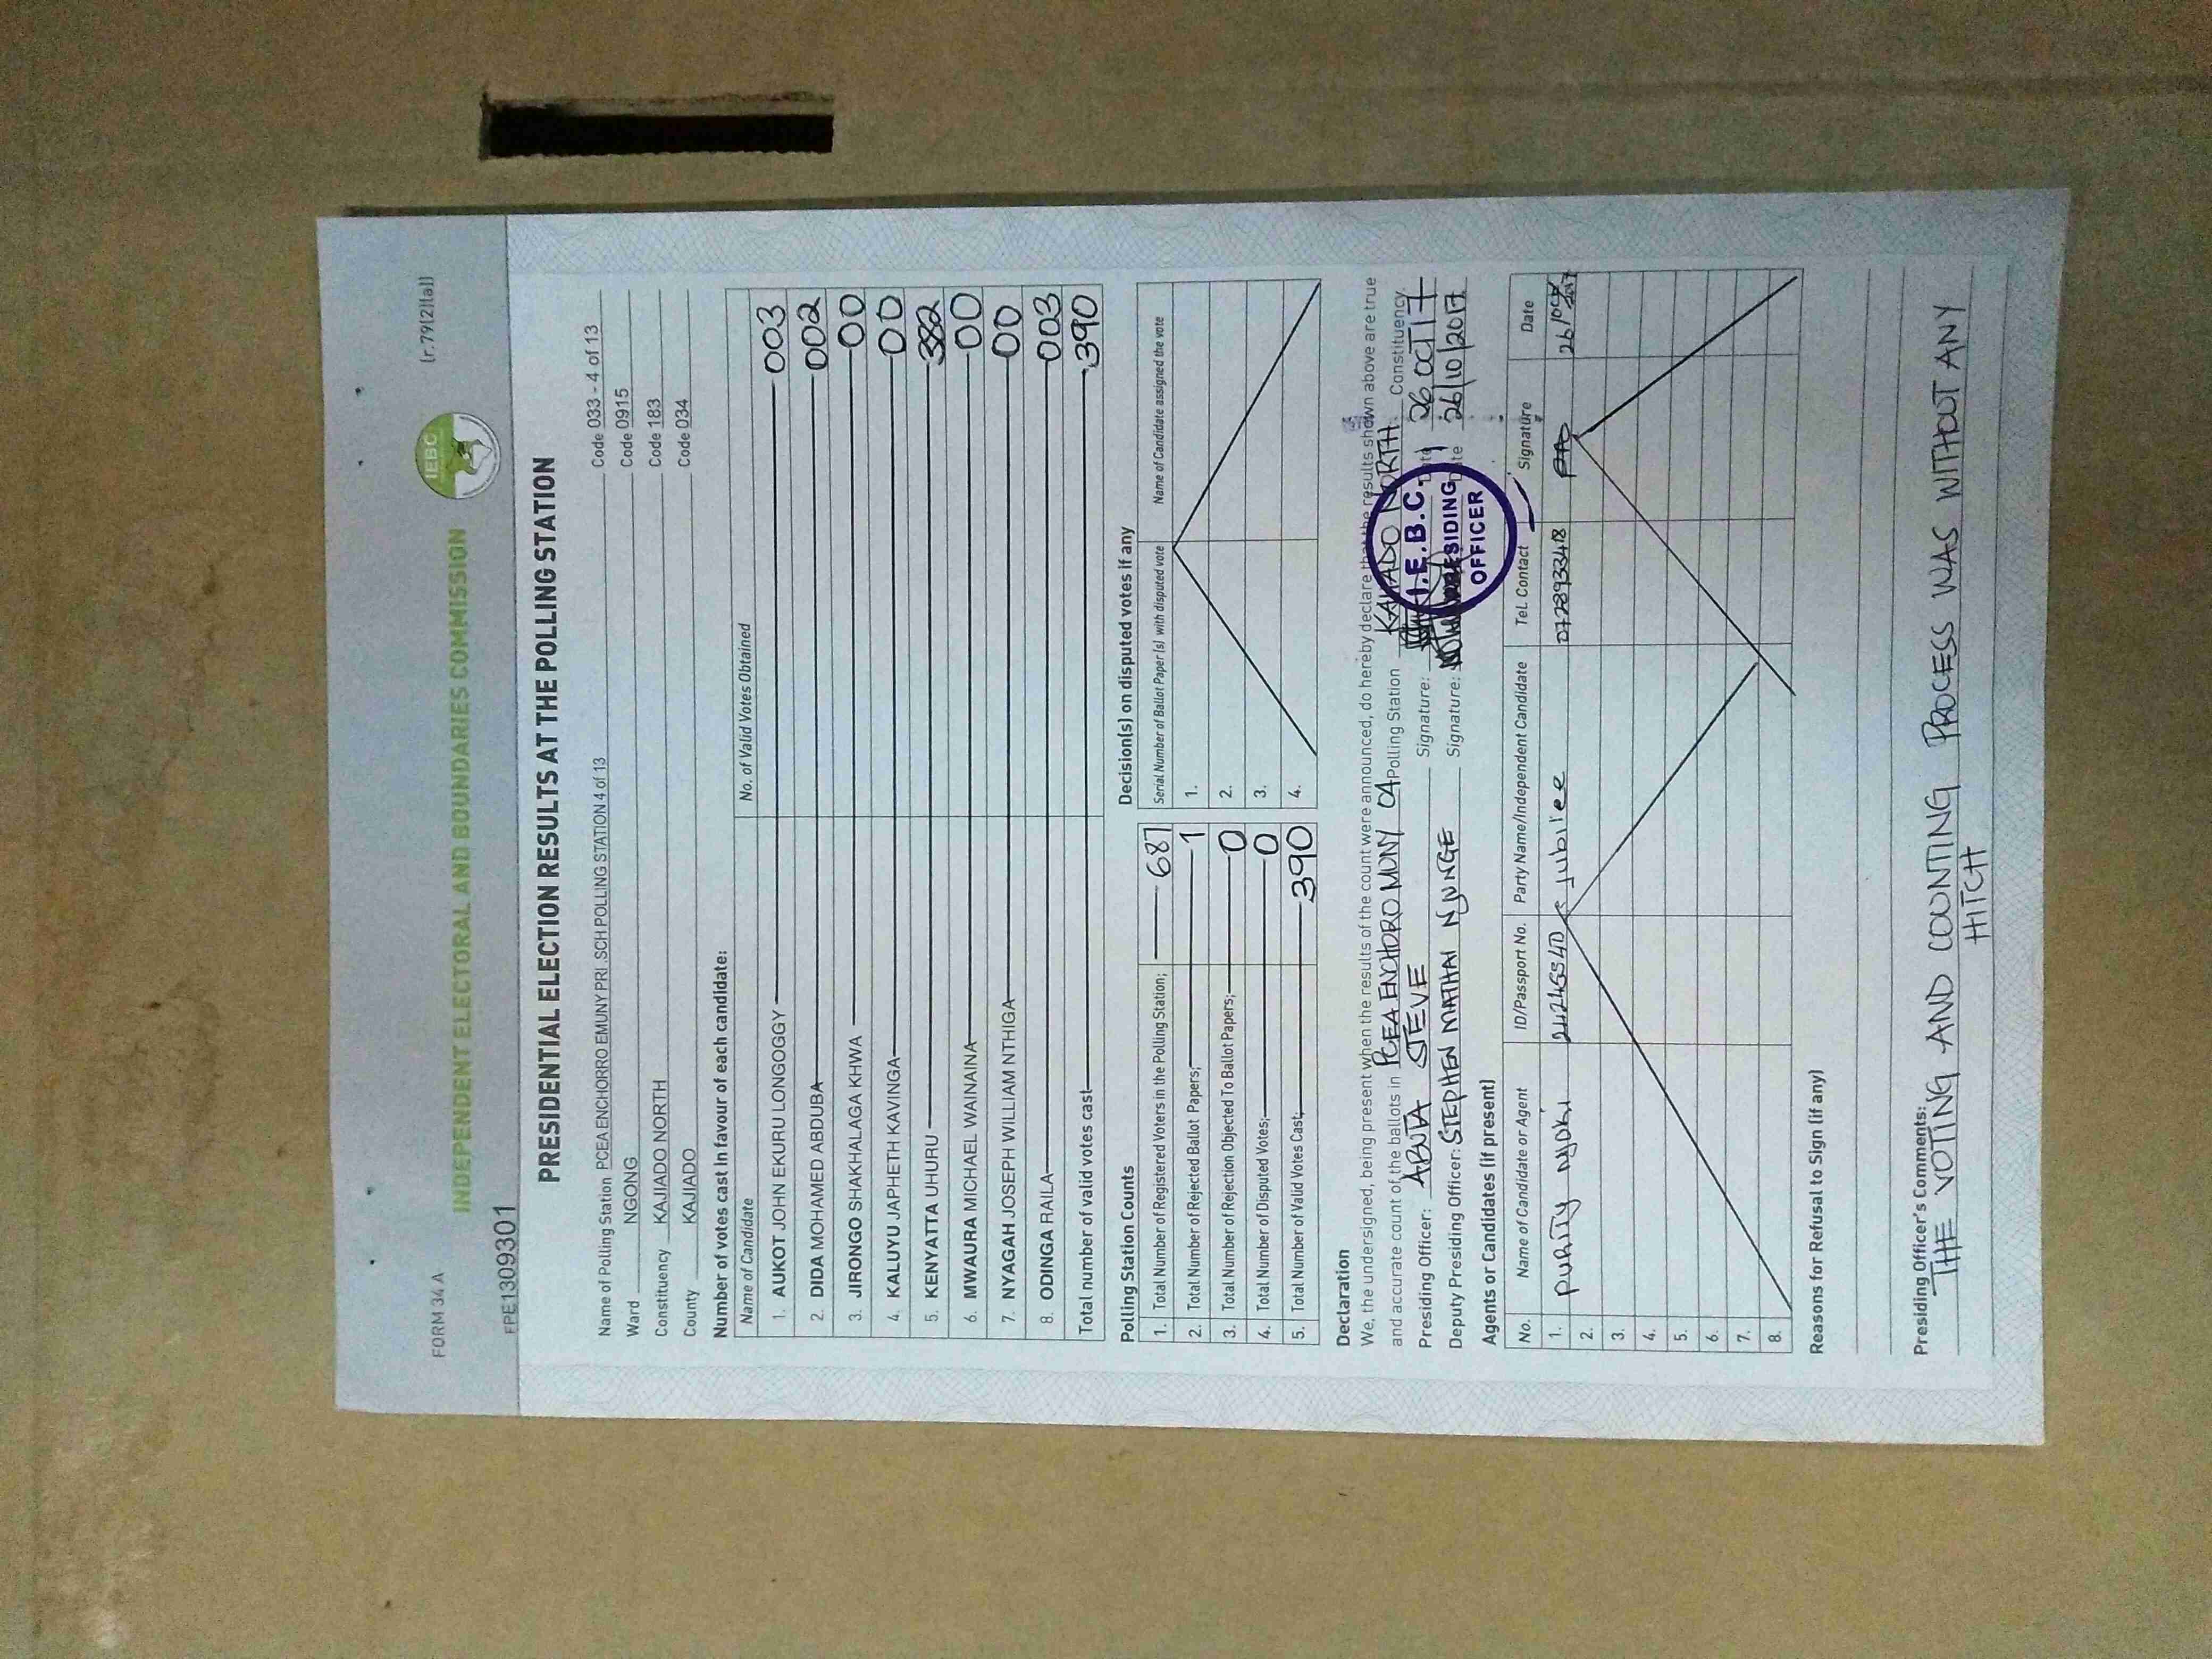 FORM 34 A
(r.79(2)(a))
INDEPENDENT ELECTORAL AND BOUNDARIES COMMISSION
IEBC
FPE1309301
PRESIDENTIAL ELECTION RESULTS AT THE POLLING STATION
Name of Polling Station PCEA ENCHORRO EMUNY PRI .SCH POLLING STATION 4 of 13 Code 033 - 4 of 13
Ward NGONG Code 0915
Constituency KAJIADO NORTH Code 183
County KAJIADO Code 034
Number of votes cast in favour of each candidate:
Name of Candidate No. of Valid Votes Obtained
1. AUKOT JOHN EKURU LONGOGGY 003
2. DIDA MOHAMED ABDUBA 002
3. JIRONGO SHAKHALAGA KHWA 00
4. KALUYU JAPHETH KAVINGA 00
5. KENYATTA UHURU 382
6. MWAURA MICHAEL WAINAINA 00
7. NYAGAH JOSEPH WILLIAM NTHIGA 00
8. ODINGA RAILA 003
Total number of valid votes cast 390
Polling Station Counts
1. Total Number of Registered Voters in the Polling Station; 687
2. Total Number of Rejected Ballot Papers; 1
3. Total Number of Rejection Objected To Ballot Papers; 0
4. Total Number of Disputed Votes; 0
5. Total Number of Valid Votes Cast; 390
Decision(s) on disputed votes if any
Serial Number of Ballot Paper (s) with disputed vote Name of Candidate assigned the vote
1.
2.
3.
4.
Declaration
We, the undersigned, being present when the results of the count were announced, do hereby declare that the results shown above are true
and accurate count of the ballots in PCEA ENCHORO MUNY 04 Polling Station KAJIADO NORTH Constituency.
Presiding Officer: ABUTA STEVE Signature: Date 26 OCT 17
Deputy Presiding Officer: STEPHEN MATHAI NJUNGE Signature: Date 26/10/2017
I.E.B.C.
PRESIDING
OFFICER
Agents or Candidates (if present)
No. Name of Candidate or Agent ID/Passport No. Party Name/Independent Candidate Tel. Contact Signature Date
1. Purity Njoki Jubilee 0728933418
2.
3.
4.
5.
6.
7.
8.
Reasons for Refusal to Sign (if any)
Presiding Officer's Comments:
THE VOTING AND COUNTING PROCESS WAS WITHOUT ANY
HITCH